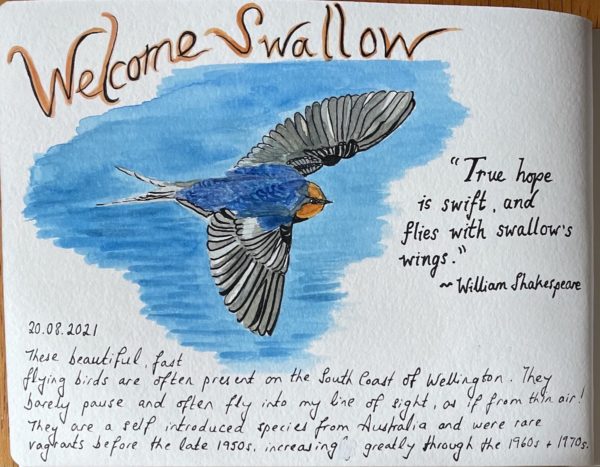 Welcome Swallow
"True hope
is swift, and
flies with swallow's
wings."
~ William Shakespeare
20.08.2021
These beautiful, fast
flying birds are often present on the South Coast of Wellington. They
barely pause and often fly into my line of sight, as if from thin air!
They are a self introduced species from Australia and were rare
vagrants before the late 1950s, increasing greatly through the 1960s + 1970s.